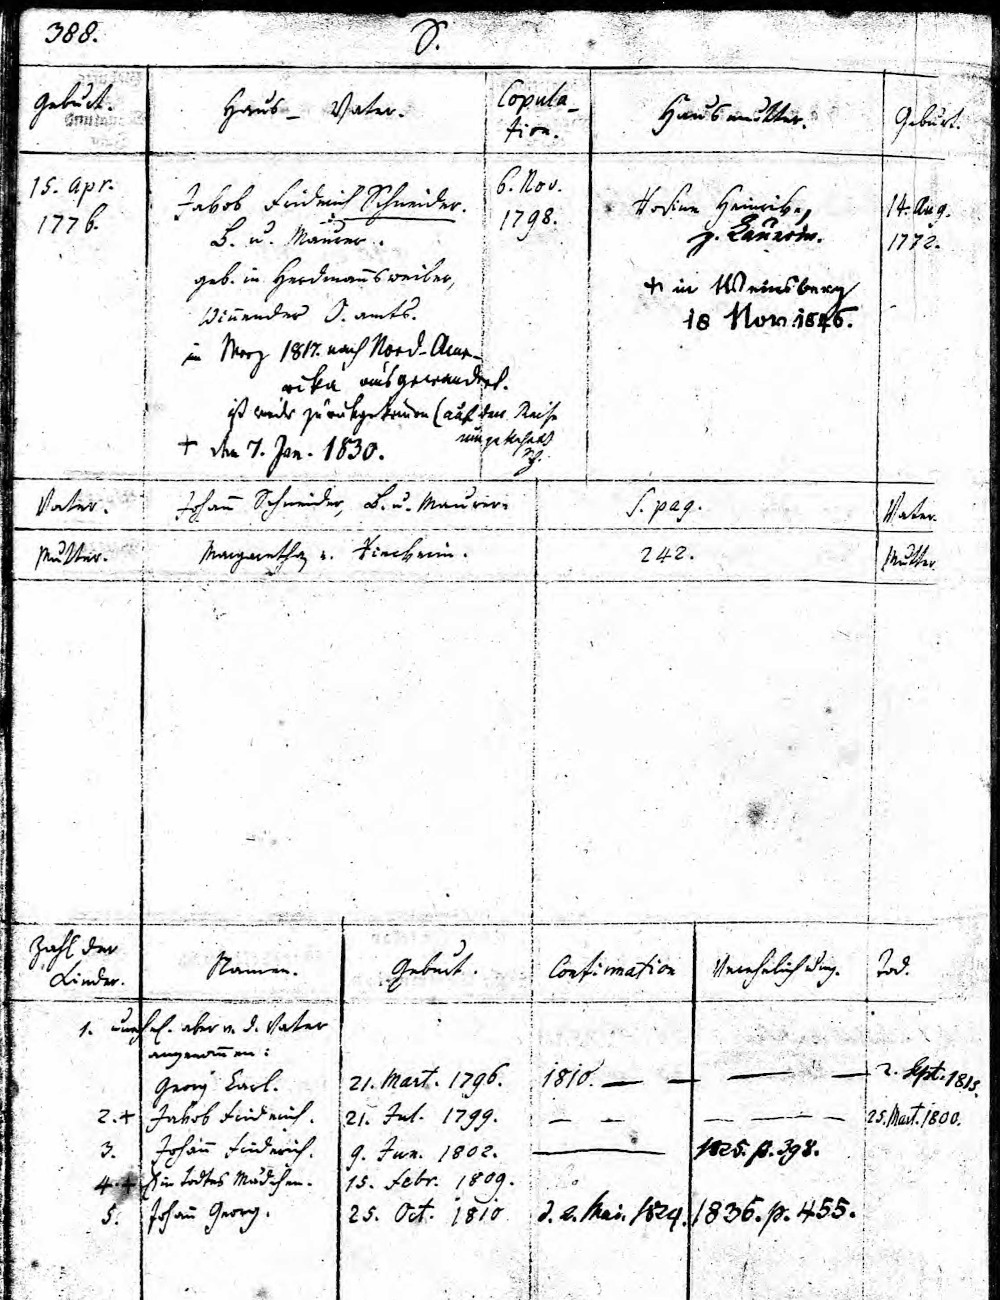 388.
S.
Geburt.
Haus-Vater.
Copula-
tion.
Hausmutter.
Geburt.
15. Apr.
1776.
Jakob Friderich Schneider.
B. u. Maurer.
geb. in Herdmañsweiler,
Wiñender O. amts.
in Merz 1817. nach Nord-Ame-
rika ausgewandert.
ist wider zurükgekom̃en (auf der Reise
umgekehrt)
+ den 7. Jan. 1830.
6. Nov.
1798.
Heinrike,
+ in Weinsberg
18 Nov. 1846.
14. Aug.
1772.
Vater.
Johañ Schneider, B. u. Maurer.
S. pag.
Vater.
Mutter.
Margaretha, g.
242.
Mutter.
Zahl der
Kinder.
Namen.
Geburt.
Confirmation
Verehelichung.
Tod.
1. unehel. aber v. d. Vater
angenom̃en:
Georg Carl.
21. Mart. 1796.
1810.
2. Sept. 1813.
2. + Jakob Friderich.
21. Jul. 1799.
25. Mart. 1800.
3. Johañ Friderich.
9. Jun. 1802.
1825. p. 398.
4. + Ein todtes Mädchen.
15. Febr. 1809.
5. Johañ Georg.
25. Oct. 1810
d. 2. Mai. 1824.
1836. p. 455.